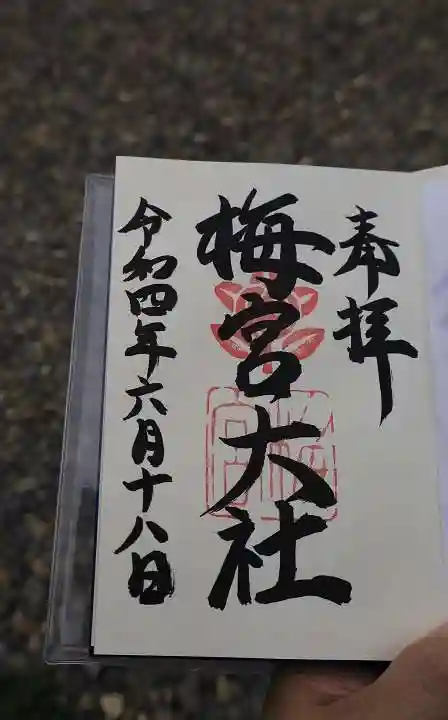 奉拝
梅宮大社
令和四年六月十八日